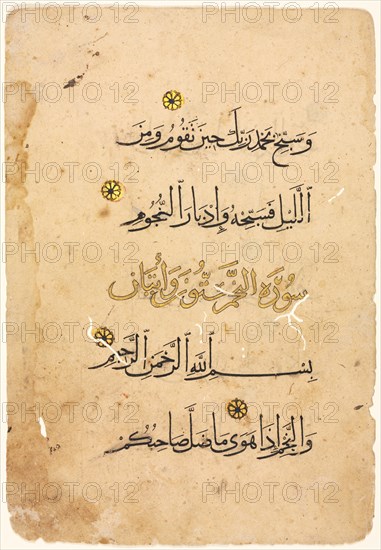 وَسَبِّحْ بِحَمْدِ رَبِّكَ حِينَ تَقُومُ وَمِنَ
ٱللَّيْلِ فَسَبِّحْهُ وَإِدْبَارَ ٱلنُّجُومِ
سُورَةُ النَّجْمِ سِتُّونَ وَآيَتَانِ
بِسْمِ ٱللَّهِ ٱلرَّحْمَٰنِ ٱلرَّحِيمِ
وَٱلنَّجْمِ إِذَا هَوَىٰ مَا ضَلَّ صَاحِبُكُمْ